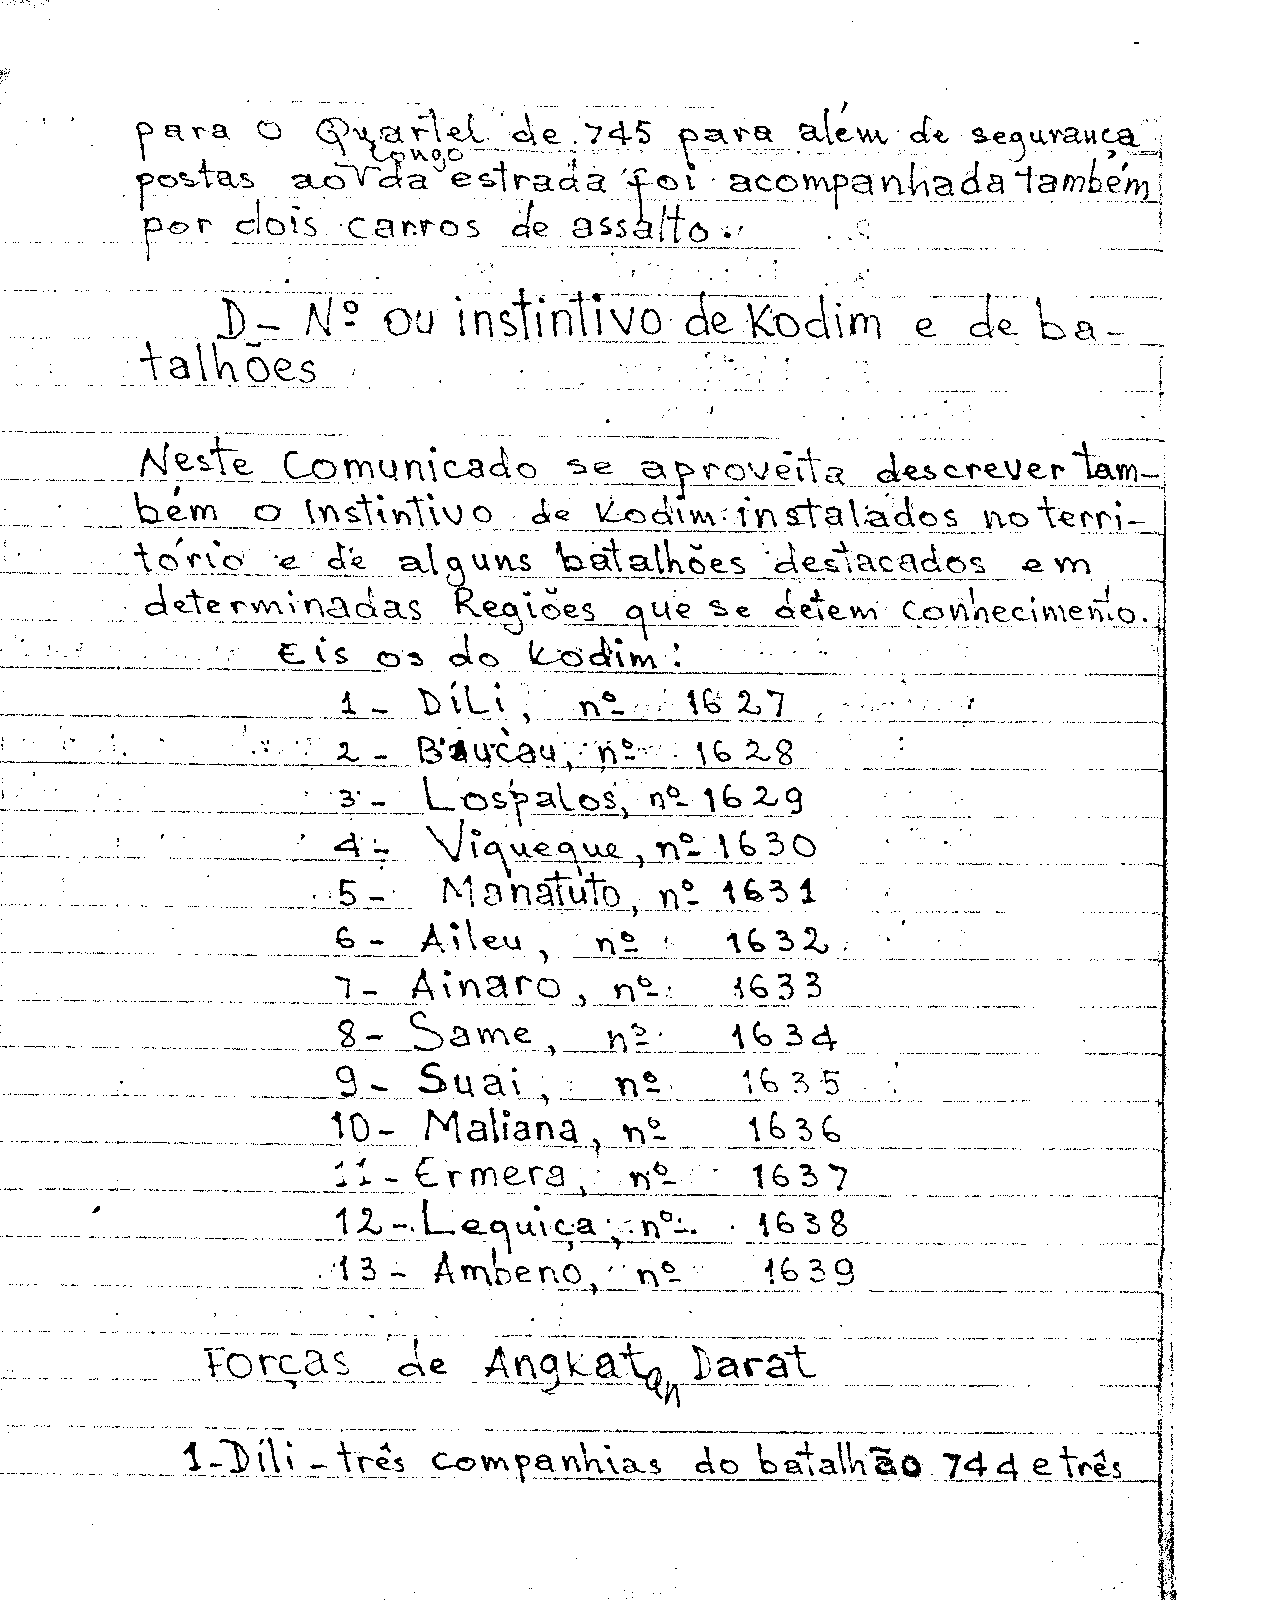 para o Quartel de 745 para além de segurança
postas ao longo da estrada foi acompanhada também
por dois carros de assalto.
D- Nº ou instintivo de Kodim e de ba-
talhões
Neste Comunicado se aproveita descrever tam-
bém o instintivo de Kodim instalados no terri-
tório e de alguns batalhões destacados em
determinadas Regiões que se detem conhecimento.
Eis os do Kodim:
1- Díli, nº 1627
2- Baucau, nº 1628
3- Lospalos, nº 1629
4- Viqueque, nº 1630
5- Manatuto, nº 1631
6- Aileu, nº 1632
7- Ainaro, nº 1633
8- Same, nº 1634
9- Suai, nº 1635
10- Maliana, nº 1636
11- Ermera, nº 1637
12- Lequiça, nº 1638
13- Ambeno, nº 1639
Forças de Angkatan Darat
1- Díli - três companhias do batalhão 744 e três